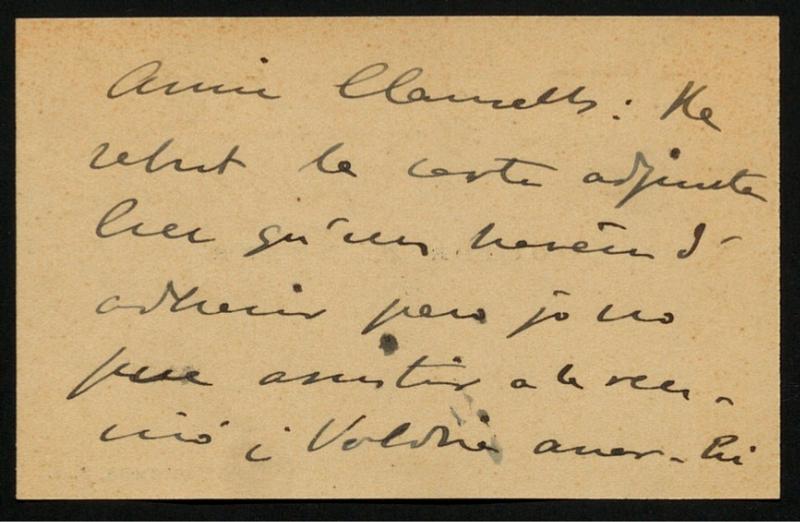 Amic Clausells: He
rebut la carta adjunta
Crec qu'ens haurém d'
adherir pero jo no
puc assistir a la reu-
nió i Voldria anar-hi